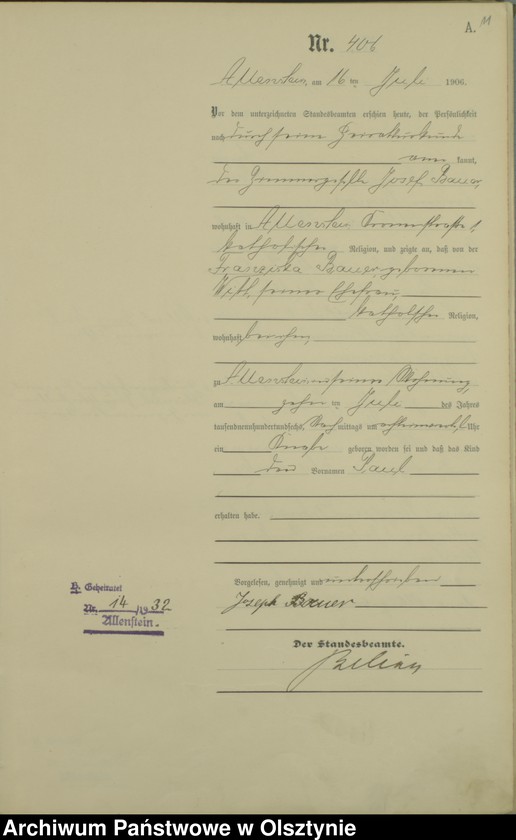 A. 11
Nr. 406
Allenstein, am 16 ten Juli 1906.
Vor dem unterzeichneten Standesbeamten erschien heute, der Persönlichkeit
nach durch seine Heiratsurkunde
aner kannt,
der Zimmergeselle Josef Bauer,
wohnhaft in Allenstein
katholischer Religion, und zeigte an, daß von der
Franziska Bauer, geborenen
seiner Ehefrau,
katholischer Religion,
wohnhaft bei ihm,
zu Allenstein in seiner Wohnung,
am zehn ten Juli des Jahres
tausendneunhundertundsechs, Nachmittags um Uhr
ein Knabe geboren worden sei und daß das Kind
den Vornamen Paul
erhalten habe.
Vorgelesen, genehmigt und unterschrieben
Joseph Bauer
Der Standesbeamte.
H. Geheiratet
Nr. 14/1932
Allenstein.
Archiwum Państwowe w Olsztynie